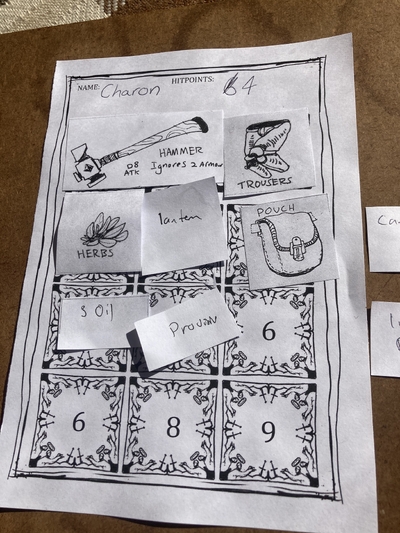 NAME: Charon HITPOINTS: 4
HAMMER
D8 ATK Ignores 2 Armor
TROUSERS
HERBS
lantern
POUCH
3 Oil
6
6
8
9